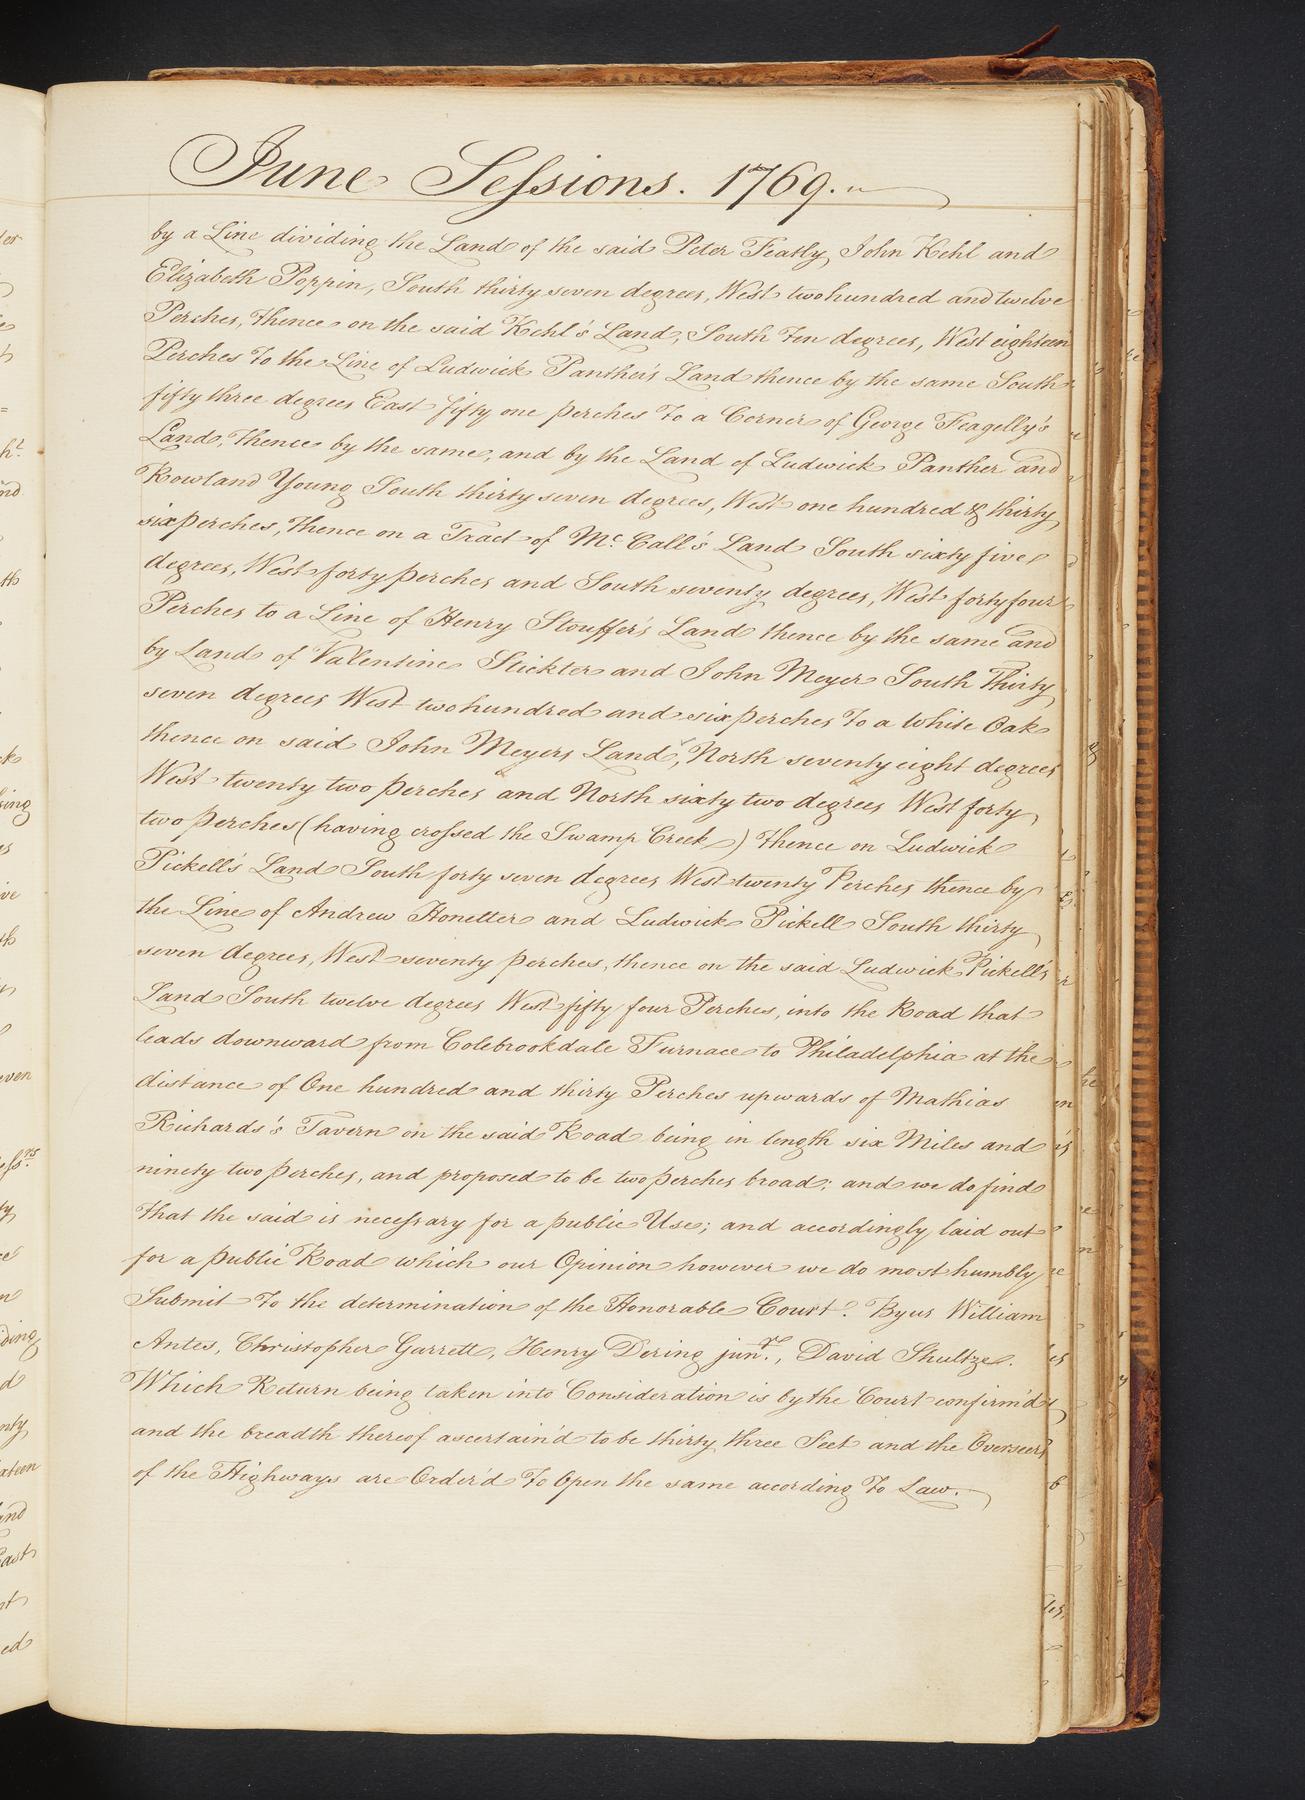 June Sessions. 1769.
by a Line dividing the Land of the said Peter Featly, John Kehl and
Elizabeth Poppin, South thirty seven degrees, West two hundred and twelve
Perches, thence on the said Kehl's Land, South Ten degrees, West eighteen
Perches To the Line of Ludwick Panther's Land thence by the same South
fifty three degrees East fifty one perches To a Corner of George Feagelly's
Land, thence by the same, and by the Land of Ludwick Panther and
Rowland Young South thirty seven degrees, West one hundred & thirty
six perches, thence on a Tract of Mc. Call's Land South sixty five
degrees, West forty perches and South seventy degrees, West forty four
Perches to a Line of Henry Stouffer's Land thence by the same and
by Land of Valentine Stickter and John Meyer South Thirty
seven degrees West two hundred and six perches To a White Oak
thence on said John Meyers Land, North seventy eight degrees
West twenty two perches and North sixty two degrees West forty
two perches (having crossed the Swamp Creek) thence on Ludwick
Pickell's Land South forty seven degrees West twenty Perches thence by
the Line of Andrew Honetter and Ludwick Pickell South thirty
seven degrees, West seventy perches, thence on the said Ludwick Pickell's
Land South twelve degrees West fifty four Perches, into the Road that
leads downward from Colebrookdale Furnace to Philadelphia at the
distance of One hundred and thirty Perches upwards of Mathias
Richards's Tavern on the said Road being in length six Miles and
ninety two perches, and proposed to be two perches broad; and we do find
That the said is necessary for a public Use; and accordingly laid out
for a public Road which our Opinion however we do most humbly
Submit To the determination of the Honorable Court. By us William
Antes, Christopher Garrett, Henry Dering junr., David Shultze.
Which Return being taken into Consideration is by the Court confirm'd
and the breadth thereof ascertain'd to be thirty three Feet and the Overseers
of the Highways are Order'd To Open the same according To Law.